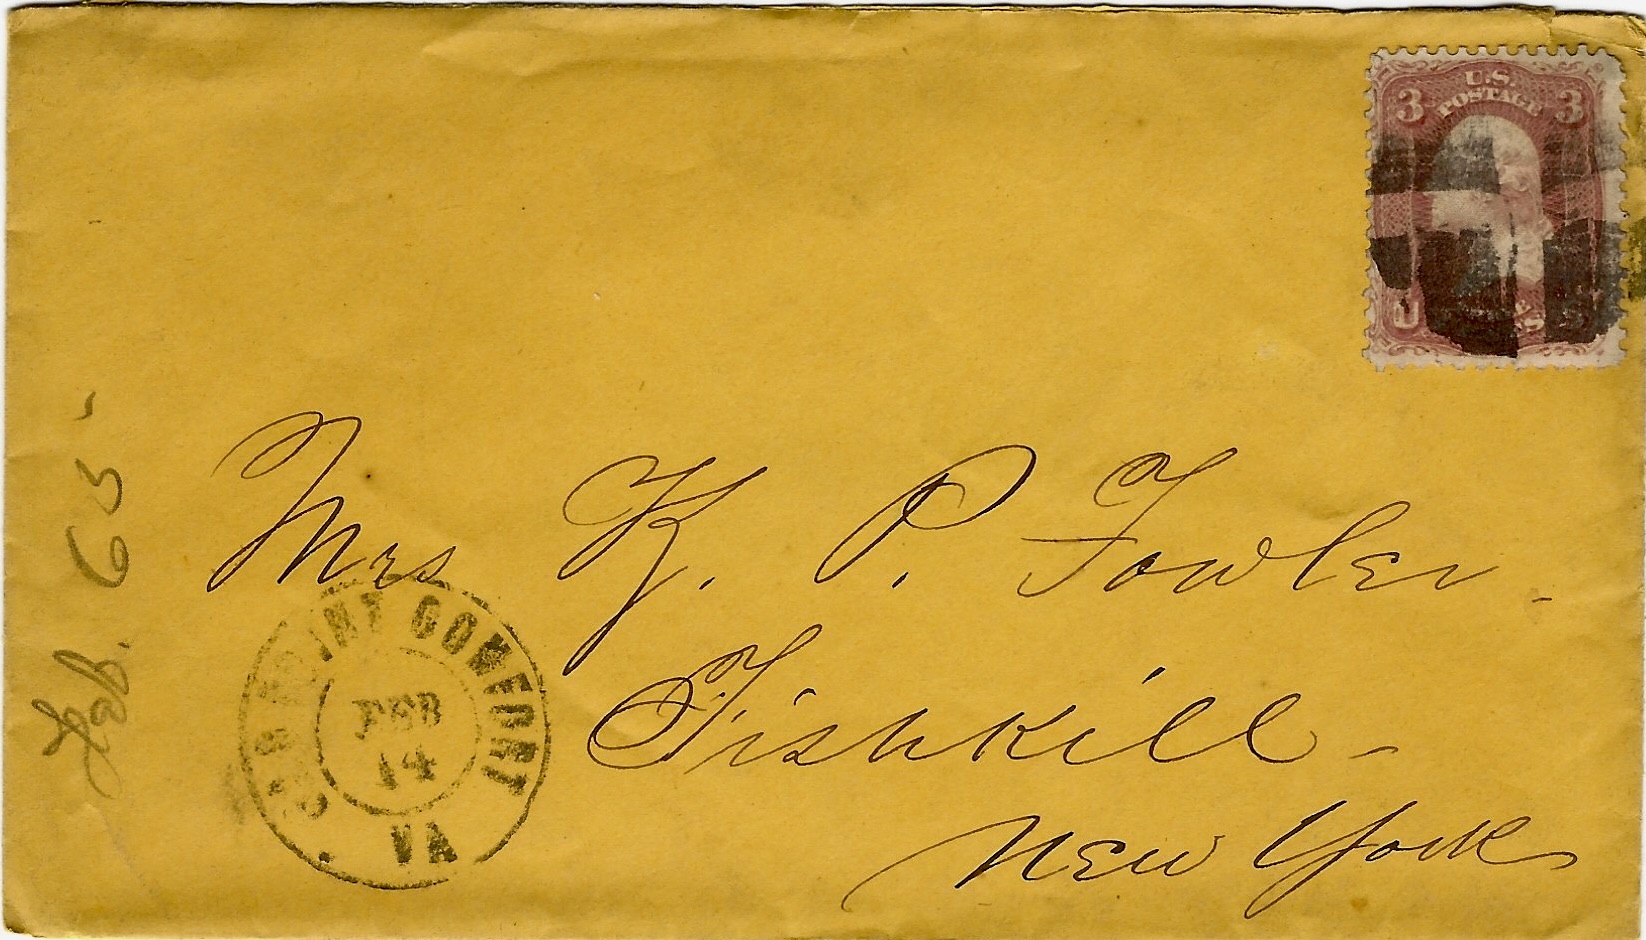 U.S.
POSTAGE
3 3
U
Mrs K. P. Fowler.
Fishkill -
New York
OLD POINT COMFORT
FEB
14
VA
Feb. 65